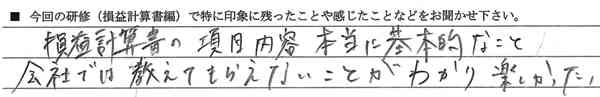 ■ 今回の研修（損益計算書編）で特に印象に残ったことや感じたことなどをお聞かせ下さい。
損益計算書の 項目内容 本当に基本的なこと
会社では 教えてもらえないことが わかり 楽しかった。